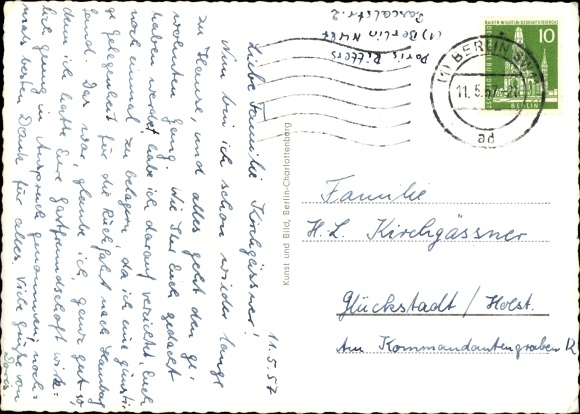 11.5.57
Liebe Familie Kirchgässner!
Nun bin ich schon wieder lange
zu Hause, und alles geht den ge-
wohnten Gang. Wie Ihr Euch gedacht
haben werdet, habe ich darauf verzichtet, Euch
noch einmal zu belagern, da ich eine günsti-
ge Gelegenheit für die Rückfahrt nach Hamburg
fand. Das war, glaube ich, ganz gut so,
denn ich hatte Eure Gastfreundschaft wirk-
lich genug in Anspruch genommen, noch-
mals besten Dank für alles. Viele Grüße von
Doris
Doris Rittern
(1) Berlin N 487
Pascalstr. 2
Kunst und Bild, Berlin-Charlottenburg
KAISER-WILHELM-GEDÄCHTNISKIRCHE
10
DEUTSCHE BUNDESPOST
BERLIN
(1) BERLIN SW
11.5.57-21
ad
Familie
H.L. Kirchgässner
Glückstadt / Holst.
Am Kommandantengraben 12